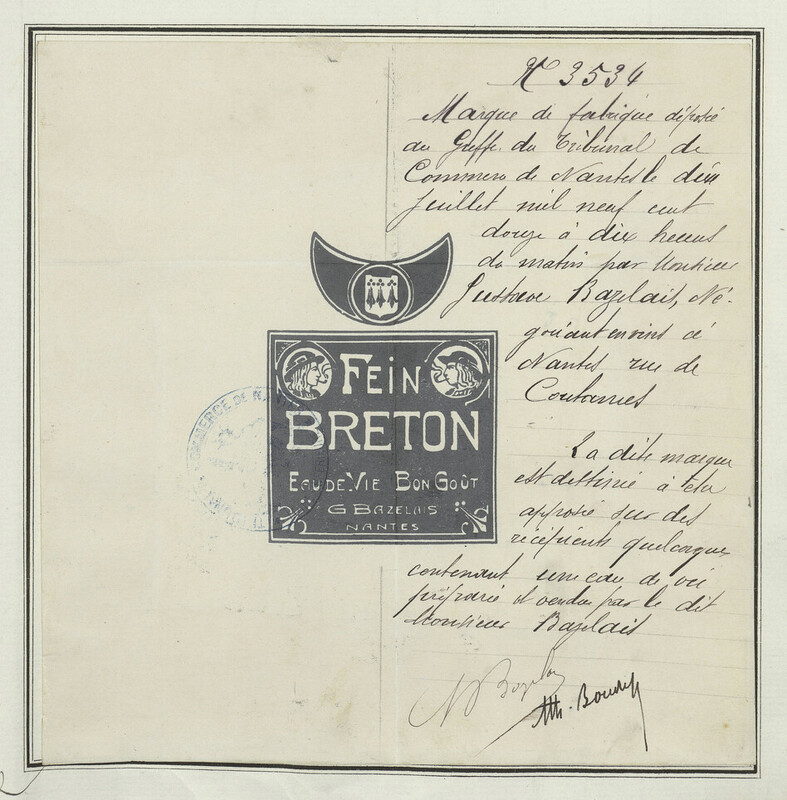 N° 3534
Marque de fabrique déposée
au Greffe du Tribunal de
Commerce de Nantes le deux
Juillet mil neuf cent
douze à dix heures
du matin par Monsieur
Gustave Bazelais, Né-
gociant en vins à
Nantes rue de
Coutances
La dite marque
est destinée à être
apposée sur des
récipients quelconques
contenant une eau de vie
préparée et vendue par le dit
Monsieur Bazelais
FEIN
BRETON
EAU DE VIE BON GOÛT
G BAZELAIS
NANTES
COMMERCE DE